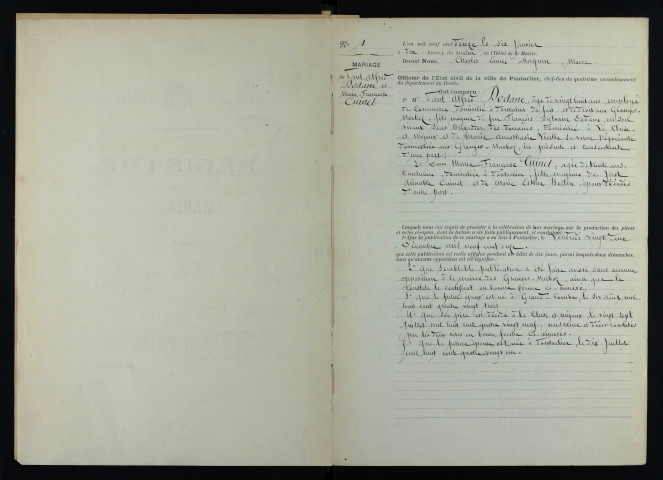 N° 1
MARIAGE
de Paul Alfred
Bodane et
Marie Françoise
Cuinet
L'an mil neuf cent douze le six Janvier
à dix heures du matin, en l'Hôtel de la Mairie.
Devant Nous, Charles Louis Magnin, Maire
Officier de l'État civil de la ville de Pontarlier, chef-lieu du quatrième arrondissement
du département du Doubs,
Ont comparu
1° M. Paul Alfred Bodane, âgé de vingt huit ans, employé
de Commerce, domicilié à Pontarlier de fait, et de droit aux Granges
Narboz, fils majeur de feu François Sylvain Bodane, en son
vivant Sous Brigadier des Douanes, domicilié à La Cluse
et Mijoux et de Marie Anasthasie
domiciliée aux Granges-Narboz, ici présente et consentante
d'une part;
2° Elle Marie Françoise Cuinet, âgée de trente ans,
Couturière, domiciliée à Pontarlier, fille majeure de Just
Aimable Cuinet et de Marie Bertin, époux décédés
d'autre part.
Lesquels nous ont requis de procéder à la célébration de leur mariage, sur la production des pièces
et actes ci-après, dont la lecture a été faite publiquement, et constatant:
1° Que la publication de ce mariage a eu lieu à Pontarlier, le Vendredi vingt deux
Décembre mil neuf cent onze
que cette publication est restée affichée pendant un délai de dix jours, parmi lesquels deux dimanches,
sans qu'aucune opposition ait été signifiée;
2° que semblable publication a été faite aussi sans aucune
opposition à la mairie des Granges-Narboz, ainsi que le
constate le certificat en bonne forme ci-annexé.
3° que le futur époux est né à Grand-Combe, le six août mil
huit cent quatre vingt trois.
4° que son père est décédé à La Cluse et Mijoux le vingt sept
Juillet mil huit cent quatre vingt neuf, naissance et décès constatés
par les deux actes en bonne forme ci-annexés.
5° que la future épouse est née à Pontarlier, le dix Juillet
mil huit cent quatre vingt un.